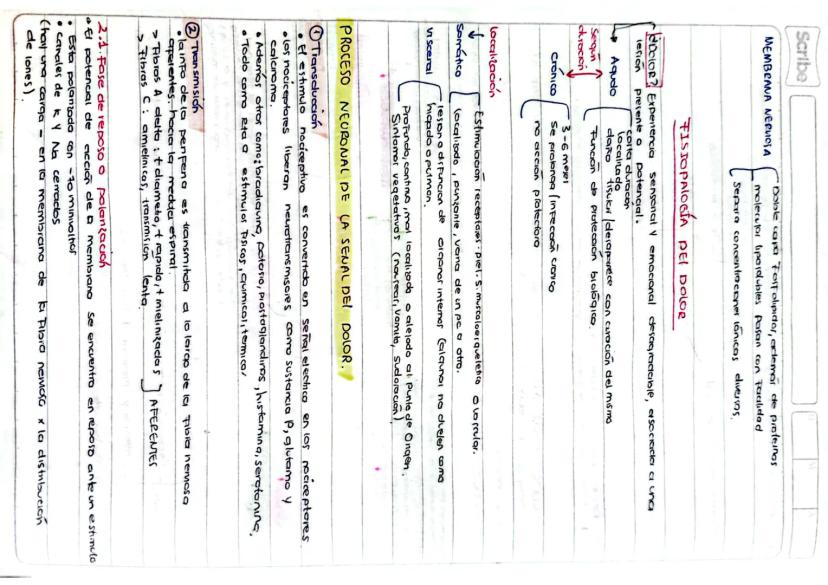 Scribe
MEMBRANA NERVIOSA
Doble capa fosfolipida, además de proteinas
moleculas liposolubles pasan con facilidad
separa concentraciones iónicas diversas.
FISIOPALOGÍA DEL DOLOR
¿DOLOR? Experiencia sensorial y emocional desagradable, asociada a una
lesión presente o potencial.
Según duración
Agudo
corta duración
localizado
daño tisular (desaparece con curación del mismo
Función de protección biológica.
Crónico
3-6 meses
se prolonga (infección cronica
no acción protectora
Localización
Somático
Estimulación receptores: piel, S. musculoesqueletico o vascular.
Localizado, punzante, varia de un pc a otro.
visceral
lesion o disfuncion de organos internos (algunos no duelen como
higado o pulmon.
Profundo, continuo, mal localizado o alejado al punto de Origen.
Sintomas vegetativos (nausear, vomito, sudoración)
PROCESO NEURONAL DE LA SEÑAL DEL DOLOR.
① Transducción
• El estimulo nociceptivo es convertido en señal electrica en los nociceptores
• los nociceptores liberan neurotransmisores como sustancia P, glutamo y
calcitonina.
• Además otros como; bradicinina, potasio, prostoglandinas, histamina, serotonina,
• Todo como rta a estimulos fisicos, quimicos, termicos
② Transmisión
• la info de la periferia es transmitida a lo largo de la fibra nerviosa
aferentes hacia la medula espinal.
> Fibras A delta: + diametro, + rapido, + mielinizadas
> Fibras C: amielinicas, transmisión lenta.
AFERENTES
2.1 Fase de reposo o polarización
• El potencial de acción de la membrana se encuentra en reposo ante un estimulo
• Esta polarizado en -70 minivoltios
• Canales de K y Na cerrados
(hay una carga - en la membrana de la fibra nerviosa x la distribución
de iones).